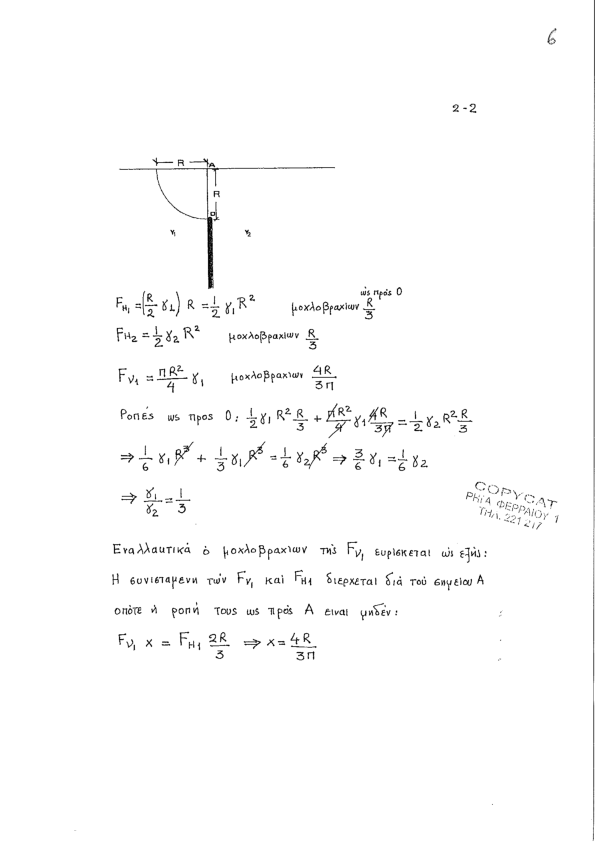 6
2-2
R A
R
O
γ₁ γ₂
F_H₁ = (R/2 γ₁) R = 1/2 γ₁ R² μοχλοβραχιων R/3 ὡς πρός Ο
F_H2 = 1/2 γ₂ R² μοχλοβραχιων R/3
F_V₁ = πR²/4 γ₁ μοχλοβραχιων 4R/3π
Ροπές ως προς Ο: 1/2 γ₁ R² R/3 + πR²/4 γ₁ 4R/3π = 1/2 γ₂ R² R/3
⇒ 1/6 γ₁ R³ + 1/3 γ₁ R³ = 1/6 γ₂ R³ ⇒ 3/6 γ₁ = 1/6 γ₂
⇒ γ₁/γ₂ = 1/3
COPYCAT
ΡΗΓΑ ΦΕΡΡΑΙΟΥ 1
ΤΗΛ. 221 217
Εναλλακτικά ὁ μοχλοβραχιων τῆς F_V₁ ευρίσκεται ὡς εξῆς:
Η συνισταμενη τῶν F_V₁ καί F_H1 διερχεται διά τοῦ σημείου Α
οπότε ἡ ροπή τους ως πρός Α ειναι μηδέν:
F_V₁ x = F_H1 2R/3 ⇒ x = 4R/3π